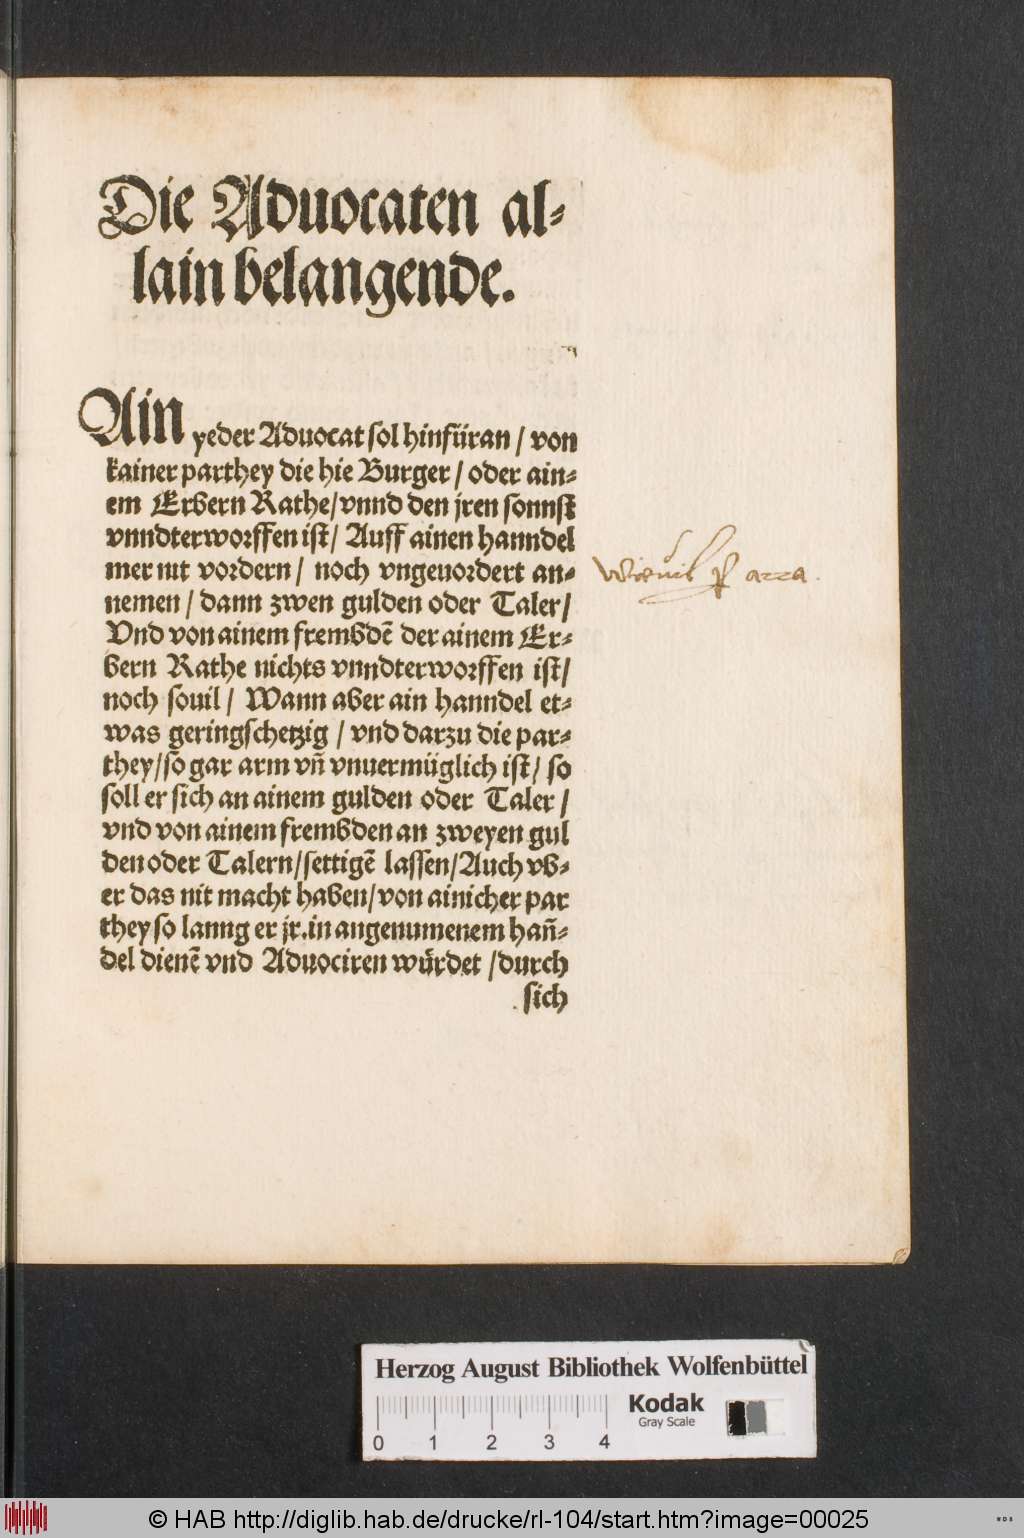 Die Aduocaten al-
lain belangende.
Ain yeder Aduocat sol hinfüran / von
kainer parthey die hie Burger / oder ain-
em Erbern Rathe / vnnd den jren sonnst
vnndterworffen ist / Auff ainen hanndel
mer nit vordern / noch vngeuordert an-
nemen / dann zwen gulden oder Taler /
Vnd von ainem frembdē der ainem Er-
bern Rathe nichts vnndterworffen ist /
noch souil / Wann aber ain hanndel et-
was geringschetzig / vnd darzu die par-
they / so gar arm vñ vnuermüglich ist / so
soll er sich an ainem gulden oder Taler /
vnd von ainem frembden an zweyen gul
den oder Talern / settigē lassen / Auch vb-
er das nit macht haben / von ainicher par
they so lanng er jr. in angenumenem hañ-
del dienē vnd Aduociren wůrdet / durch
sich
arra.
Herzog August Bibliothek Wolfenbüttel
Kodak
Gray Scale
0 1 2 3 4
© HAB http://diglib.hab.de/drucke/rl-104/start.htm?image=00025